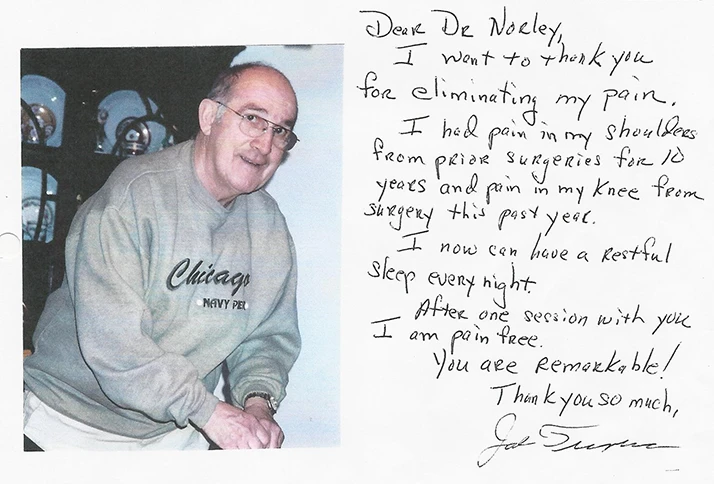 Chicago
NAVY PIER
Dear Dr Norley,
I want to thank you
for eliminating my pain.
I had pain in my shoulders
from prior surgeries for 10
years and pain in my knee from
surgery this past year.
I now can have a restful
sleep every night.
After one session with you
I am pain free.
You are remarkable!
Thank you so much,